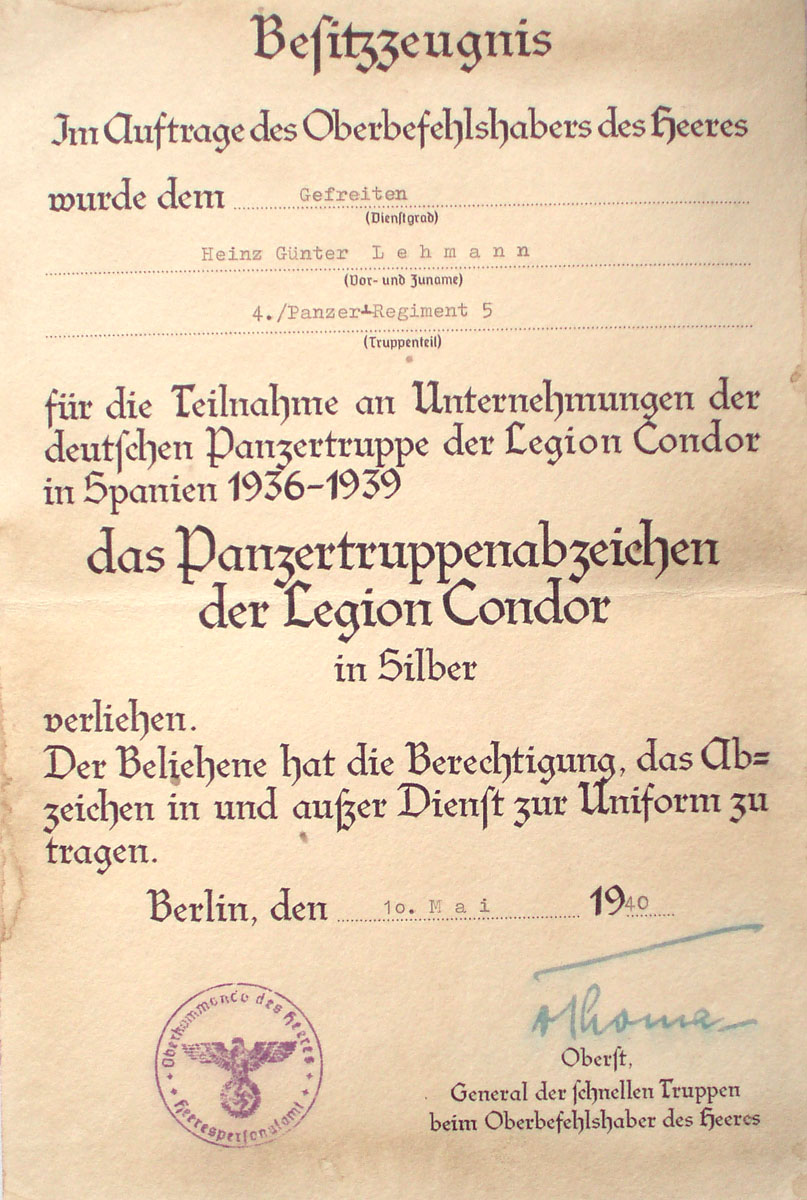 Besitzzeugnis
Im Auftrage des Oberbefehlshabers des Heeres
wurde dem Gefreiten
(Dienstgrad)
Heinz Günter Lehmann
(Vor- und Zuname)
4./Panzer-Regiment 5
(Truppenteil)
für die Teilnahme an Unternehmungen der
deutschen Panzertruppe der Legion Condor
in Spanien 1936-1939
das Panzertruppenabzeichen
der Legion Condor
in Silber
verliehen.
Der Beliehene hat die Berechtigung, das Ab=
zeichen in und außer Dienst zur Uniform zu
tragen.
Berlin, den 10. Mai 1940
Oberkommando des Heeres
Heerespersonalamt
v Thoma
Oberst,
General der schnellen Truppen
beim Oberbefehlshaber des Heeres